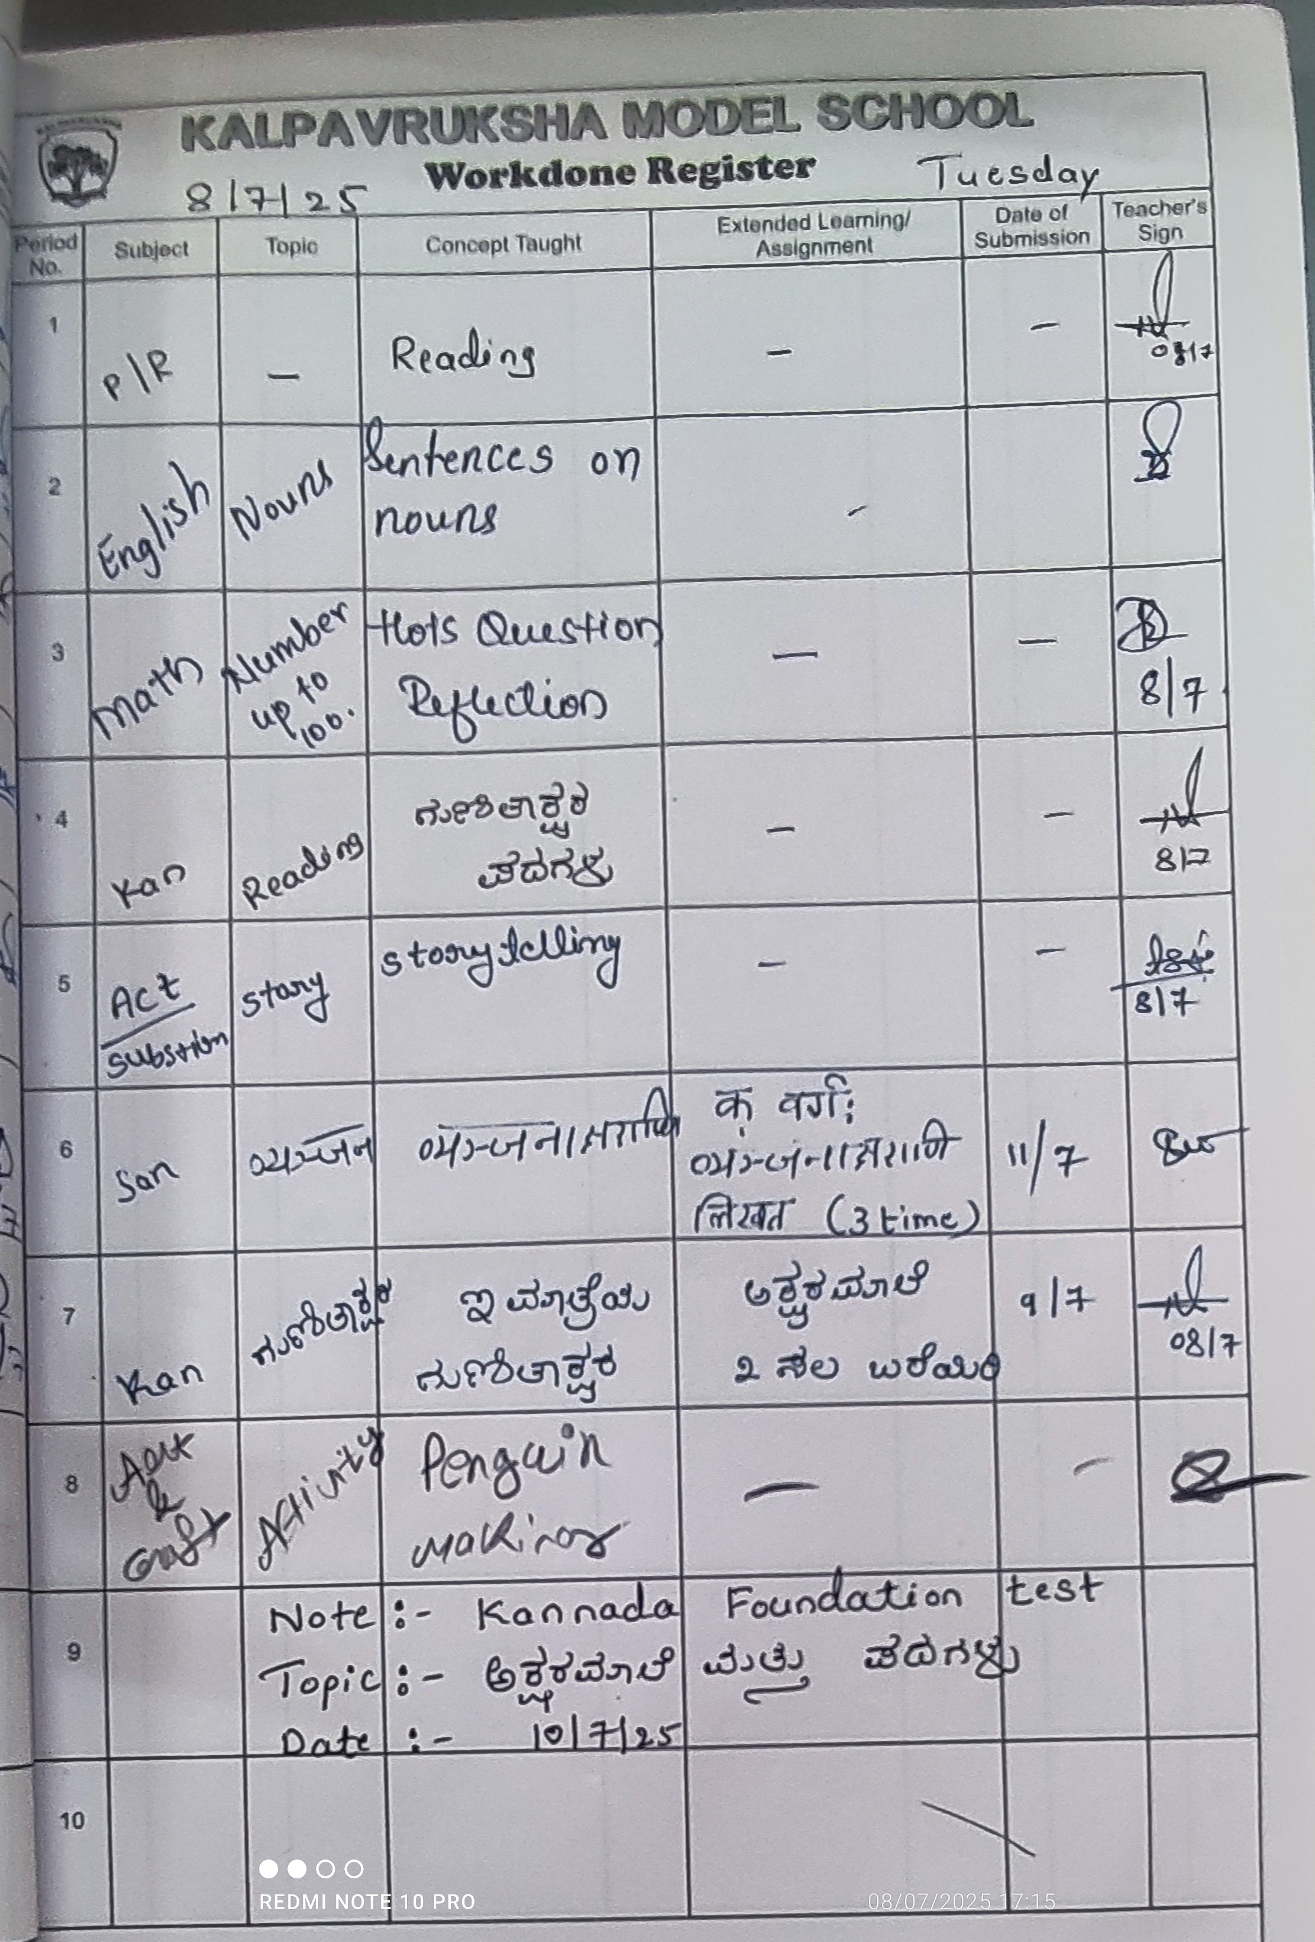 KALPAVRUKSHA MODEL SCHOOL
Workdone Register
8/7/25
Tuesday
Period No.
Subject
Topic
Concept Taught
Extended Learning/
Assignment
Date of
Submission
Teacher's
Sign
1
P/R
—
Reading
—
—
08/7
2
English
Nouns
Sentences on
nouns
-
3
Math
Number
up to
100.
Hots Question
Reflection
—
—
8/7
4
Kan
Reading
ಗುಣಿತಾಕ್ಷರ
ಪದಗಳು
—
—
8/7
5
Act
substion
story
story telling
—
—
8/7
6
San
व्यञ्जन
व्यञ्जनाक्षराणि
क् वर्गः
व्यंञ्जंनाक्षराणि
लिखत (3 time)
11/7
7
Kan
ಗುಣಿತಾಕ್ಷರ
ಇ ಮಾತ್ರೆಯ
ಗುಣಿತಾಕ್ಷರ
ಅಕ್ಷರಮಾಲೆ
೨ ಸಲ ಬರೆಯಿರಿ
9/7
08/7
8
&
Craft
Activity
Penguin
Making
—
-
9
Note :- Kannada Foundation test
Topic :- ಅಕ್ಷರಮಾಲೆ ಮತ್ತು ಪದಗಳು
Date :- 10/7/25
10
REDMI NOTE 10 PRO
08/07/2025 17:15